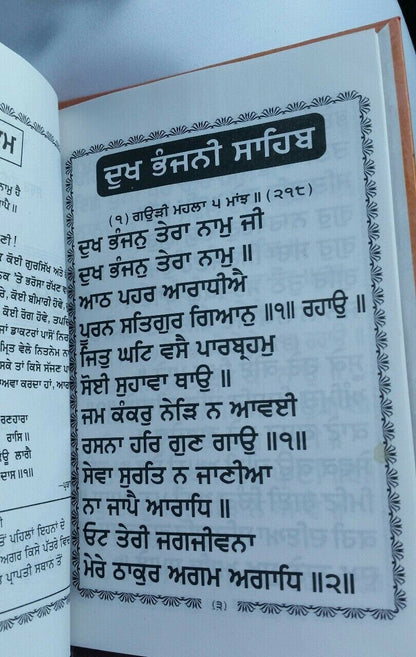 ਨਾਮੁ ਹੈ
ਕੋਈ ਗੁਰਸਿਖ ਅਤੇ
'ਤੇ ਭਰੋਸਾ ਰੱਖਣ
ਕੋਈ ਬੀਮਾਰੀ ਹੋਵੇ,
ਕੋਈ ਰੋਗ ਹੋਵੇ,
ਡਾਕਟਰਾਂ ਪਾਸੋਂ
ਵੇਲੇ ਨਿਤਨੇਮ
ਤਾਂ ਕਿਸੇ ਸੱਜਣ
ਕਰਦਾ ਹਾਂ,
ਰਾਸਿ ॥
ਲਾਗੇ
ਦਾਸ ॥੧॥
ਤੋਂ ਪਹਿਲਾਂ ਇਹਨਾਂ ਦੇ
ਅਗਰ ਕਿਸੇ ਪੱਤਰੇ
ਪ੍ਰਾਪਤੀ ਸਥਾਨ ਤੋਂ
ਦੁਖ ਭੰਜਨੀ ਸਾਹਿਬ
(੧) ਗਉੜੀ ਮਹਲਾ ੫ ਮਾਂਝ ॥ (੨੧੮)
ਦੁਖ ਭੰਜਨੁ ਤੇਰਾ ਨਾਮੁ ਜੀ
ਦੁਖ ਭੰਜਨੁ ਤੇਰਾ ਨਾਮੁ ॥
ਆਠ ਪਹਰ ਆਰਾਧੀਐ
ਪੂਰਨ ਸਤਿਗੁਰ ਗਿਆਨੁ ॥੧॥ ਰਹਾਉ ॥
ਜਿਤੁ ਘਟਿ ਵਸੈ ਪਾਰਬ੍ਰਹਮੁ
ਸੋਈ ਸੁਹਾਵਾ ਥਾਉ ॥
ਜਮ ਕੰਕਰੁ ਨੇੜਿ ਨ ਆਵਈ
ਰਸਨਾ ਹਰਿ ਗੁਣ ਗਾਉ ॥੧॥
ਸੇਵਾ ਸੁਰਤਿ ਨ ਜਾਣੀਆ
ਨਾ ਜਾਪੈ ਆਰਾਧਿ ॥
ਓਟ ਤੇਰੀ ਜਗਜੀਵਨਾ
ਮੇਰੇ ਠਾਕੁਰ ਅਗਮ ਅਗਾਧਿ ॥੨॥
(੩)